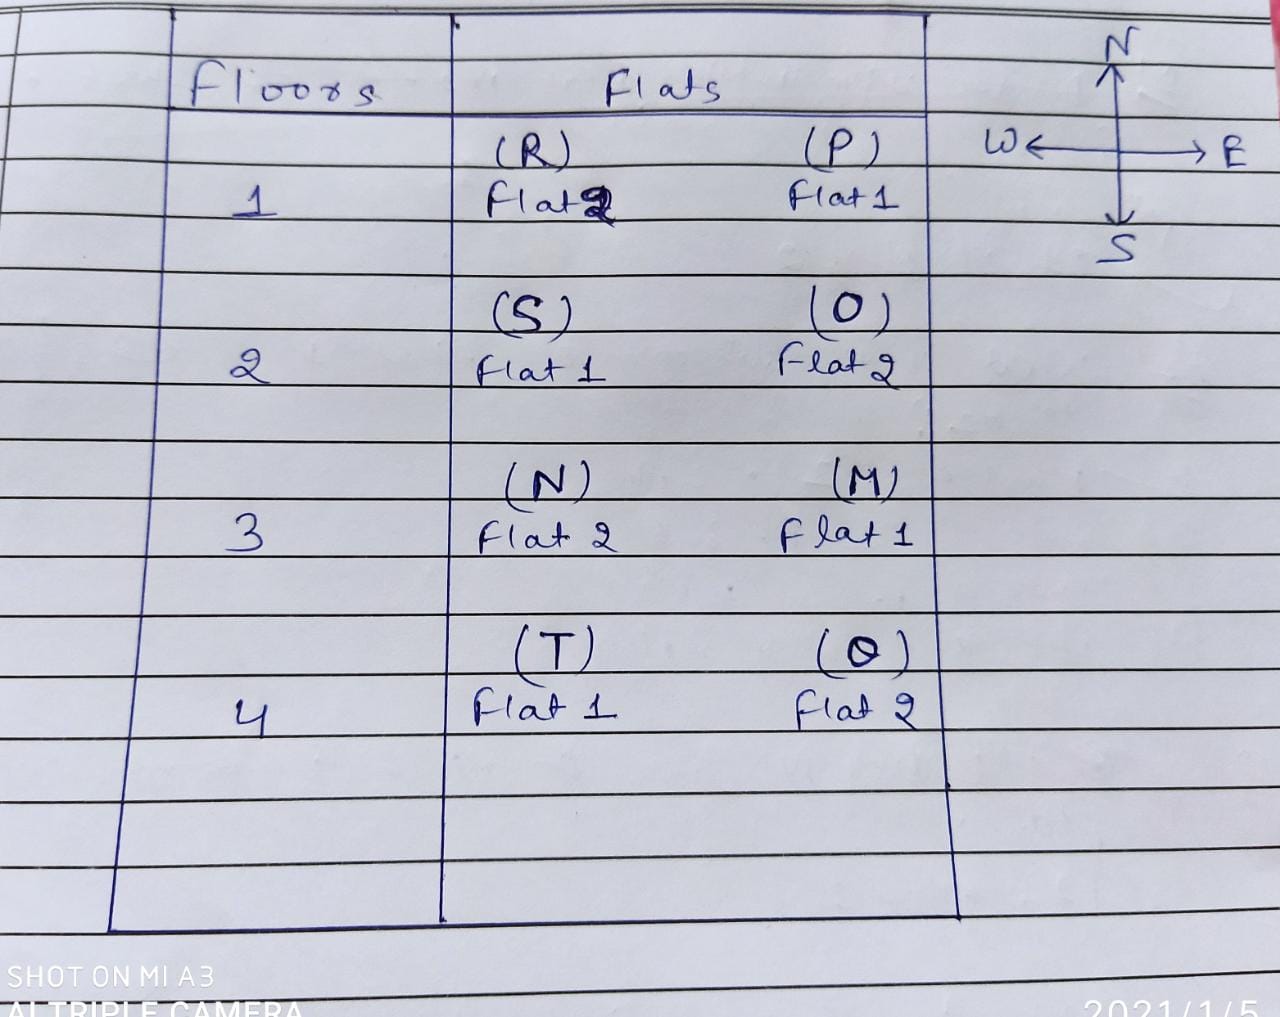 Floors Flats
(R) (P)
1 Flat 2 Flat 1
(S) (O)
2 Flat 1 Flat 2
(N) (M)
3 Flat 2 Flat 1
(T) (Q)
4 Flat 1 Flat 2
N
W E
S
SHOT ON MI A3
AI TRIPLE CAMERA
2021/1/5